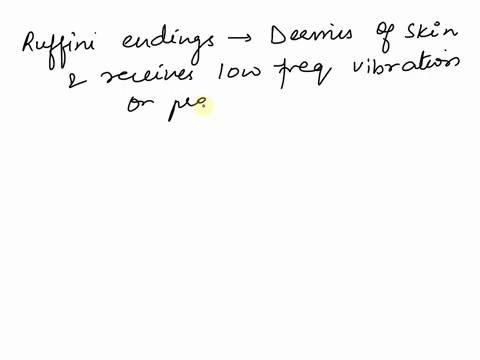 Ruffini endings → Dermis of skin
& receives low freq vibration
or pre